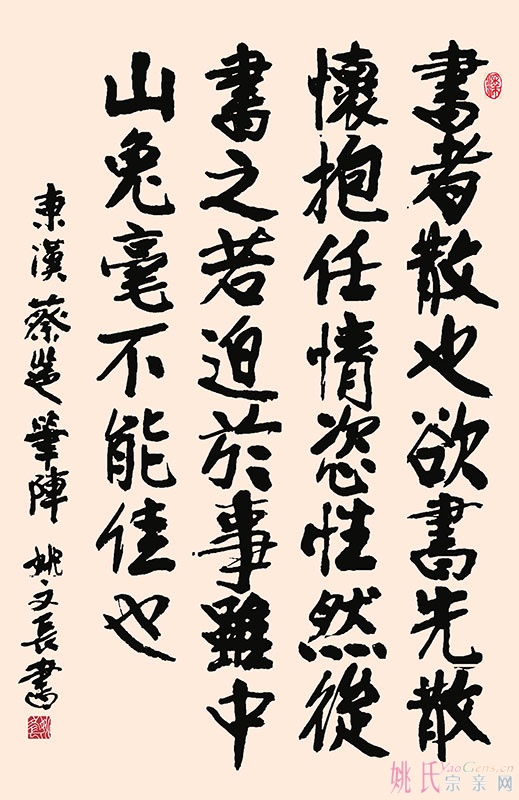 書者散也欲書先散
懷抱任情恣性然後
書之若迫於事雖中
山兔毫不能佳也
東漢蔡邕筆陣 姚文長書
姚氏宗亲网
YaoGens.cn